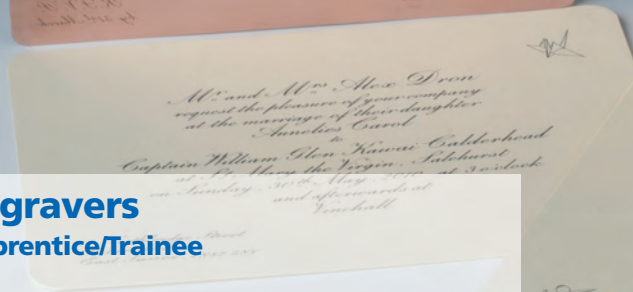 by 31st March
Mr. and Mrs Alex Dron
request the pleasure of your company
at the marriage of their daughter
Annelies Carol
to
Captain William Glen Kawai Calderhead
at St. Mary the Virgin, Salehurst
on Sunday, 30th May, 2010, at 3 o'clock
and afterwards at
Vinehall
gravers
prentice/Trainee
East Sussex